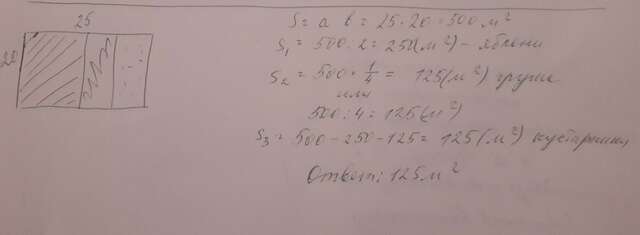 25
20
S = a b = 25·20 = 500 м²
S₁ = 500 : 2 = 250 (м²) – яблони
S₂ = 500 × 1/4 = 125 (м²) груши
или
500 : 4 = 125 (м²)
S₃ = 500 – 250 – 125 = 125 (м²) кустарники
Ответ: 125 м²